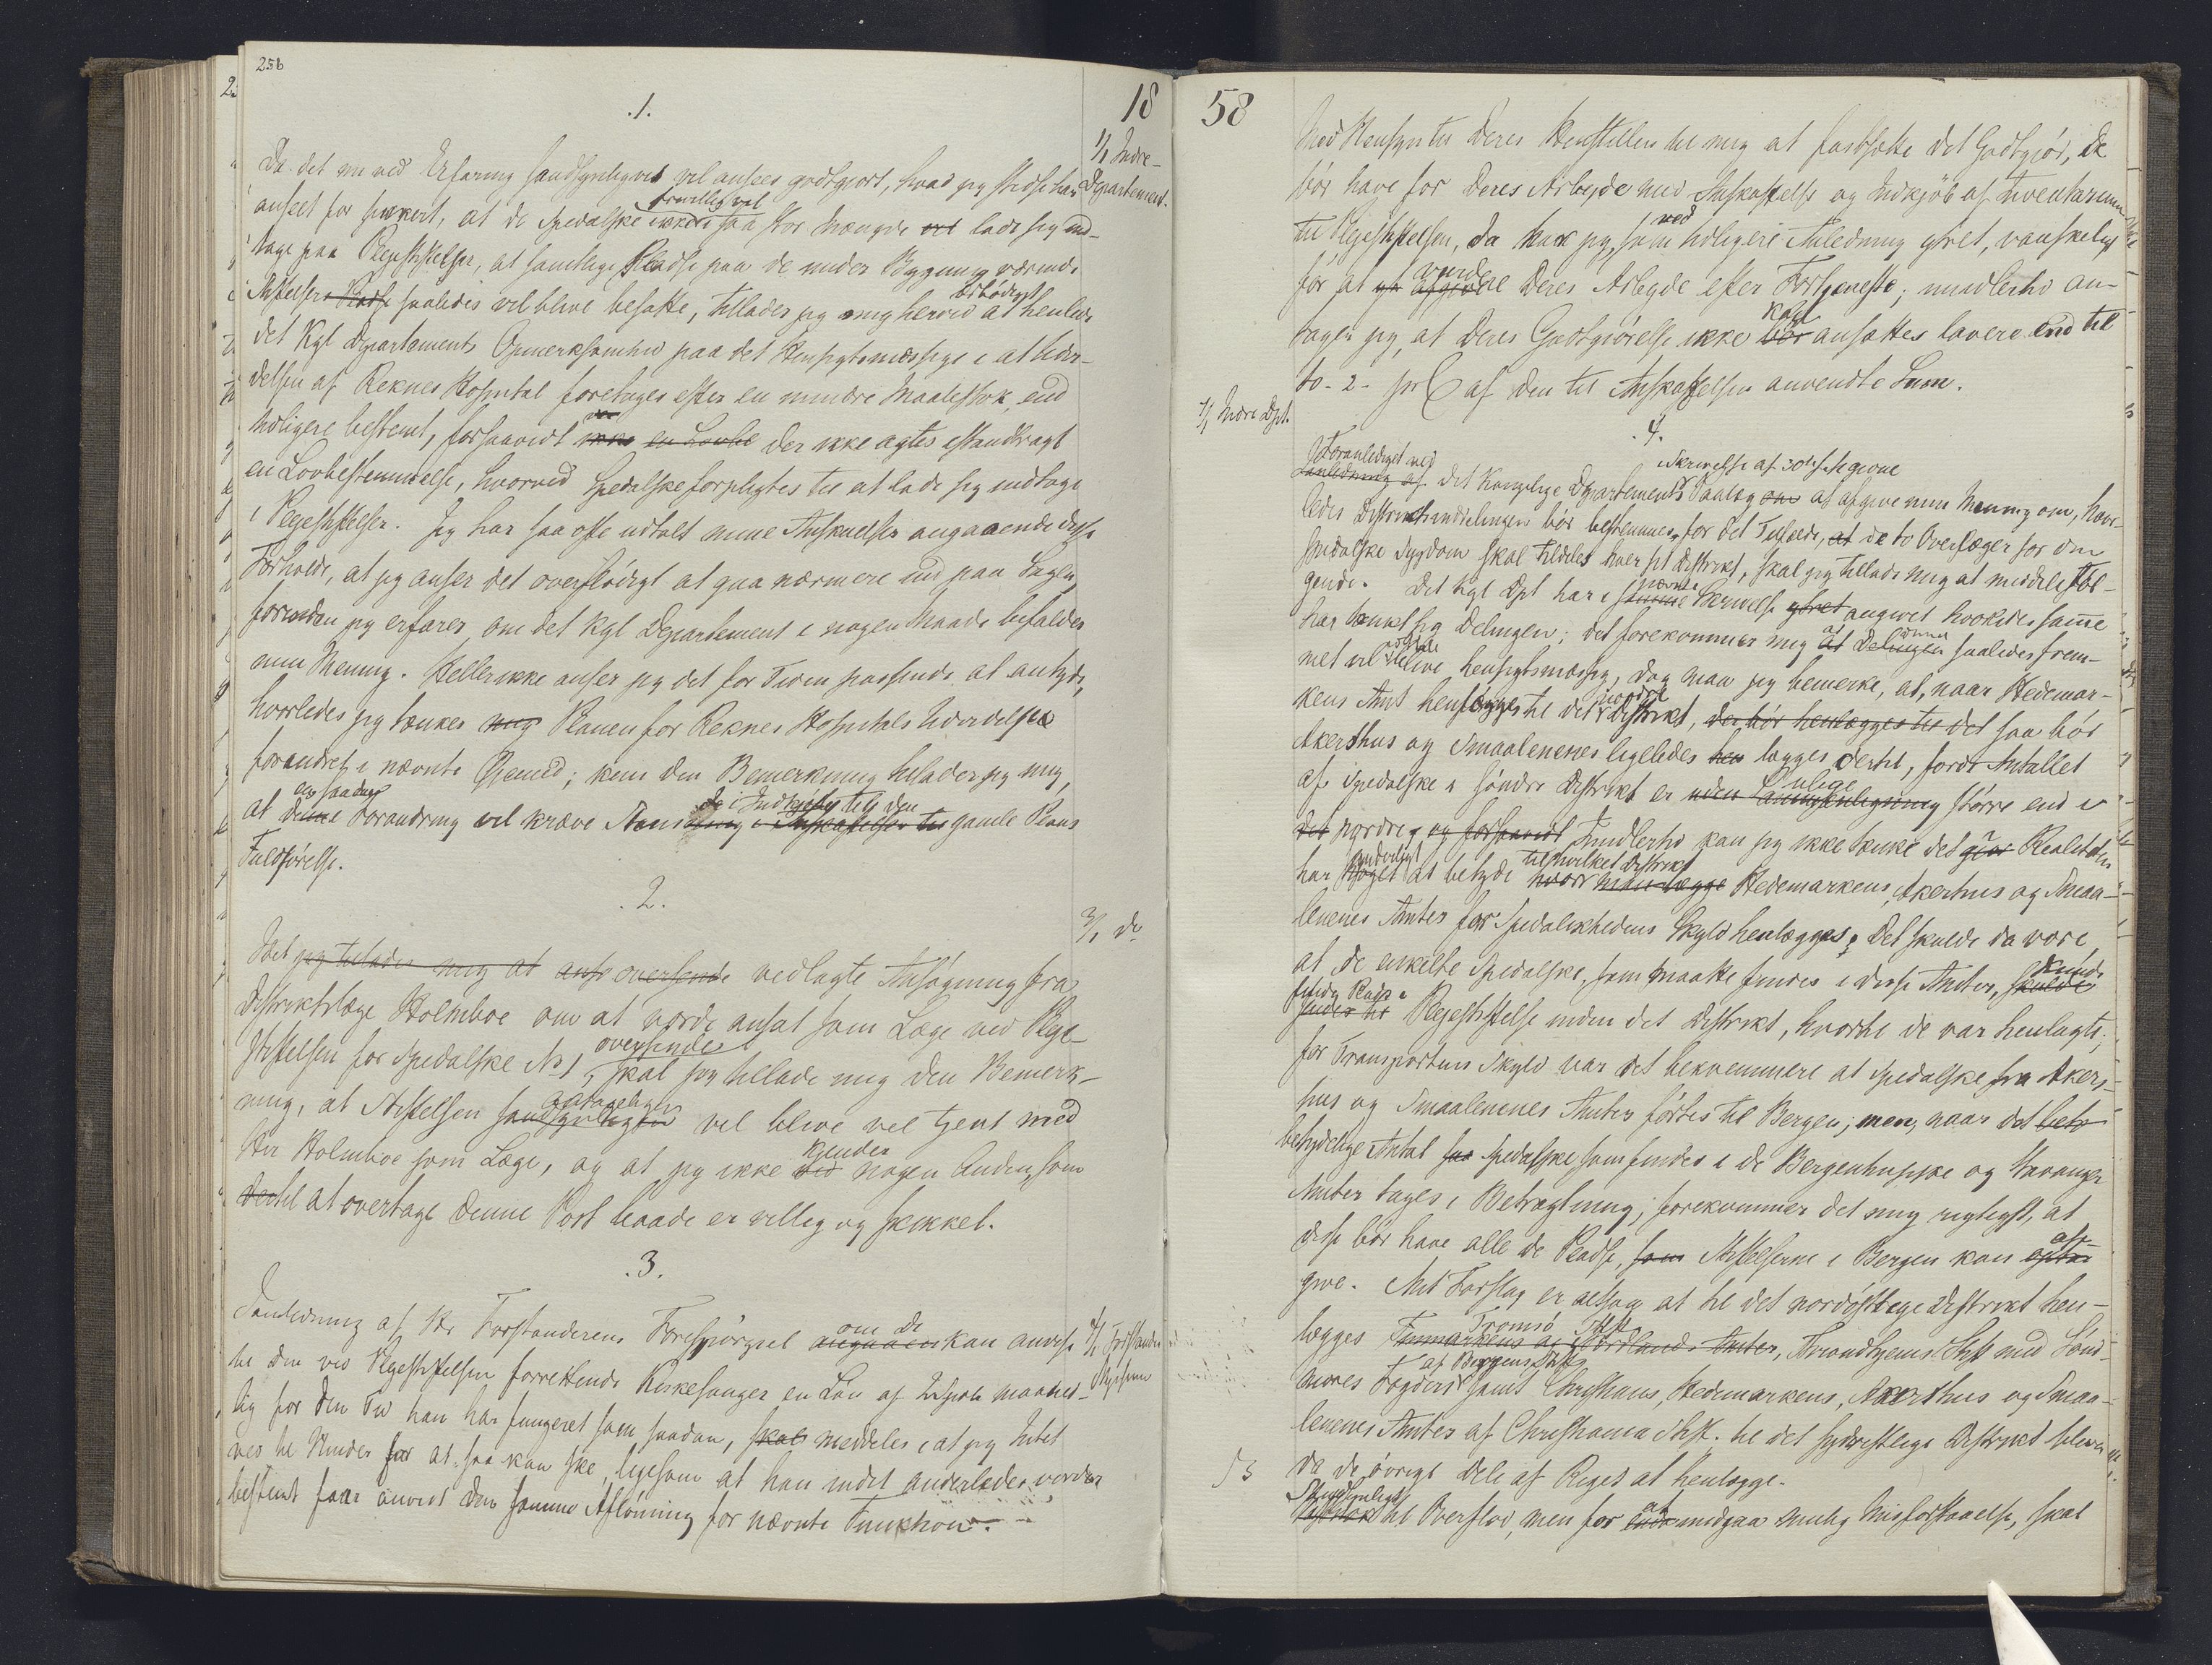 256
18
.1.
1/1 Indre-
Departement.
Da det nu ved Erfaring sandsynligvis vil ansees godtgjort, hvad jeg stedse har
anseet for sikkert, at de Spedalske frivilligvel ikke i saa stor Mængde vil lade sig ind-
tage paa Plejestiftelser, at samtlige Pladse paa de under Bygning værende
Stiftelser Pladse saaledes vil blive besatte, tillader jeg mig herved ærbødigst at henlede
det Kgl Departements Opmerksomhed paa det Hensigtsmæssige i at Udvi-
delsen af Reknes Hospital foretages efter en mindre Maalestok, end
tidligere bestemt, forsaavidt ikke en Lovbe der ikke agtes istandbragt
en Lovbestemmelse, hvorved Spedalske forpligtes til at lade sig indtage
i Plejestiftelser. Jeg har saa ofte udtalt mine Anskuelser angaaende disse
Forholde, at jeg anser det overflødigt at gaa nærmere ind paa Sagen,
forinden jeg erfarer, om det Kgl Departement i nogen Maade bifalder
min Mening. Heller ikke anser jeg det for Tiden passende at antyde,
hvorledes jeg tænker mig Planen for Reknes Hospitals Udvidelse
forandret i nævnte Øiemed; kun den Bemerkning tillader jeg mig,
at denne en saadan Forandring vil kræve Standsning i Anskaffelser til de i Indkjøb til den gamle Plans
Fuldførelse.
.2.
3/1 do
Idet jeg tillader mig at anse oversende vedlagte Ansøgning fra
Distriktslæge Holmboe om at vorde ansat som Læge ved Pleje-
stiftelsen for Spedalske No 1, oversendes skal jeg tillade mig den Bemerk-
ning, at Stiftelsen sandsynligvis antagelig vil blive vel tjent med
Hr Holmboe som Læge, og at jeg ikke ved kjender nogen Anden, som
dertil at overtage denne Post baade er villig og skikket.
.3.
4/1 Forstander
I Anledning af Hr Forstanderens Forespørgsel angaaen om De kan anvise
til den ved Plejestiftelsen forrettende Kirkesanger en Løn af 2 Spdlr maaned-
lig for den Tid han har fungeret som saadan, skal meddeles at jeg Intet
ved til Hinder for at saa kan ske, ligesom at han indtil anderledes vorder
bestemt faar anvist den samme Afløning for nævnte Funktion.
58
Med Hensyn til Deres Henstillen til mig at fastsætte det Godtgjør, De
bør have for Deres Arbejde med Anskaffelse og Indkjøb af Inventarium
til Plejestiftelsen, da har jeg, som ved tidligere Anledning ytret, vanskeligt
for at afgive vurdere Deres Arbejde efter Fortjeneste; imidlertid an-
tager jeg, at Deres Godtgjørelse ikke bør kan ansættes lavere end til
to - 2 - prC af den til Anskaffelsen anvendte Sum.
4/1 Indre Dpt.
.4.
Foranlediget ved
I Anledning af det Kongelige Departements i Skrivelse af 30te f.M. givne Paalæg om at afgive min Mening om, hvor-
ledes Distriktsinddelingen bør bestemmes, for det Tilfælde, at de to Overlæger for den
spedalske Sygdom skal tildeles hver sit Distrikt, skal jeg tillade mig at meddele Føl-
gende. Det Kgl Dpt har i samme nævnte Skrivelse ytret angivet hvorledes samme
har tænkt sig Delingen; det forekommer mig at at Delingen denne saaledes frem-
met vil blive hensigtsmæssig, dog maa jeg bemerke, at, naar Hedemar-
kens Amt henlægges til det nordre Distrikt, der bør henlægges til det saa bør
Akershus og Smaalenenes ligeledes hen lægges dertil, fordi Antallet
af Spedalske i søndre Distrikt er uden Sammenligning ulige større end i
det nordre, og forsaavidt Imidlertid kan jeg ikke tænke det i Realiteten
har Noget synderligt at betyde hvor man lægge til hvilket Distrikt Hedemarkens, Akershus og Smaa-
lenenes Amter for Spedalskhedens Skyld henlægges; det skulde da være,
at de enkelte Spedalske, som maatte findes i disse Amter, skulde kunde
finde Plads i Plejestiftelse inden det Distrikt, hvortil de var henlagte;
for Transportens Skyld var det bekvemmere at Spedalske fra Akers-
hus og Smaalenenes Amter førtes til Bergen; men, naar det bety
betydelige Antal Spedalske som findes i de Bergenhusiske og Stavanger
Amter tages i Betragtning, forekommer det mig rigtigst, at
disse bør have alle de Pladse, som Stiftelserne i Bergen kan af-
give. Mit Forslag er altsaa at til det nordøstlige Distrikt hen-
lægges Finmarkens og Nordlands Amter, Tromsø Stift Throndhjems Stift med Sønd-
møres Fogderi af Bergens Stift samt Christians, Hedemarkens, Akershus og Smaa-
lenenes Amter af Christiania Stift. til det sydvestlige Distrikt bliver
da de øvrige Dele af Riget at henlægge.
Sandsynligt til Overflod, men for at undgaa mulig Misforstaaelse, skal